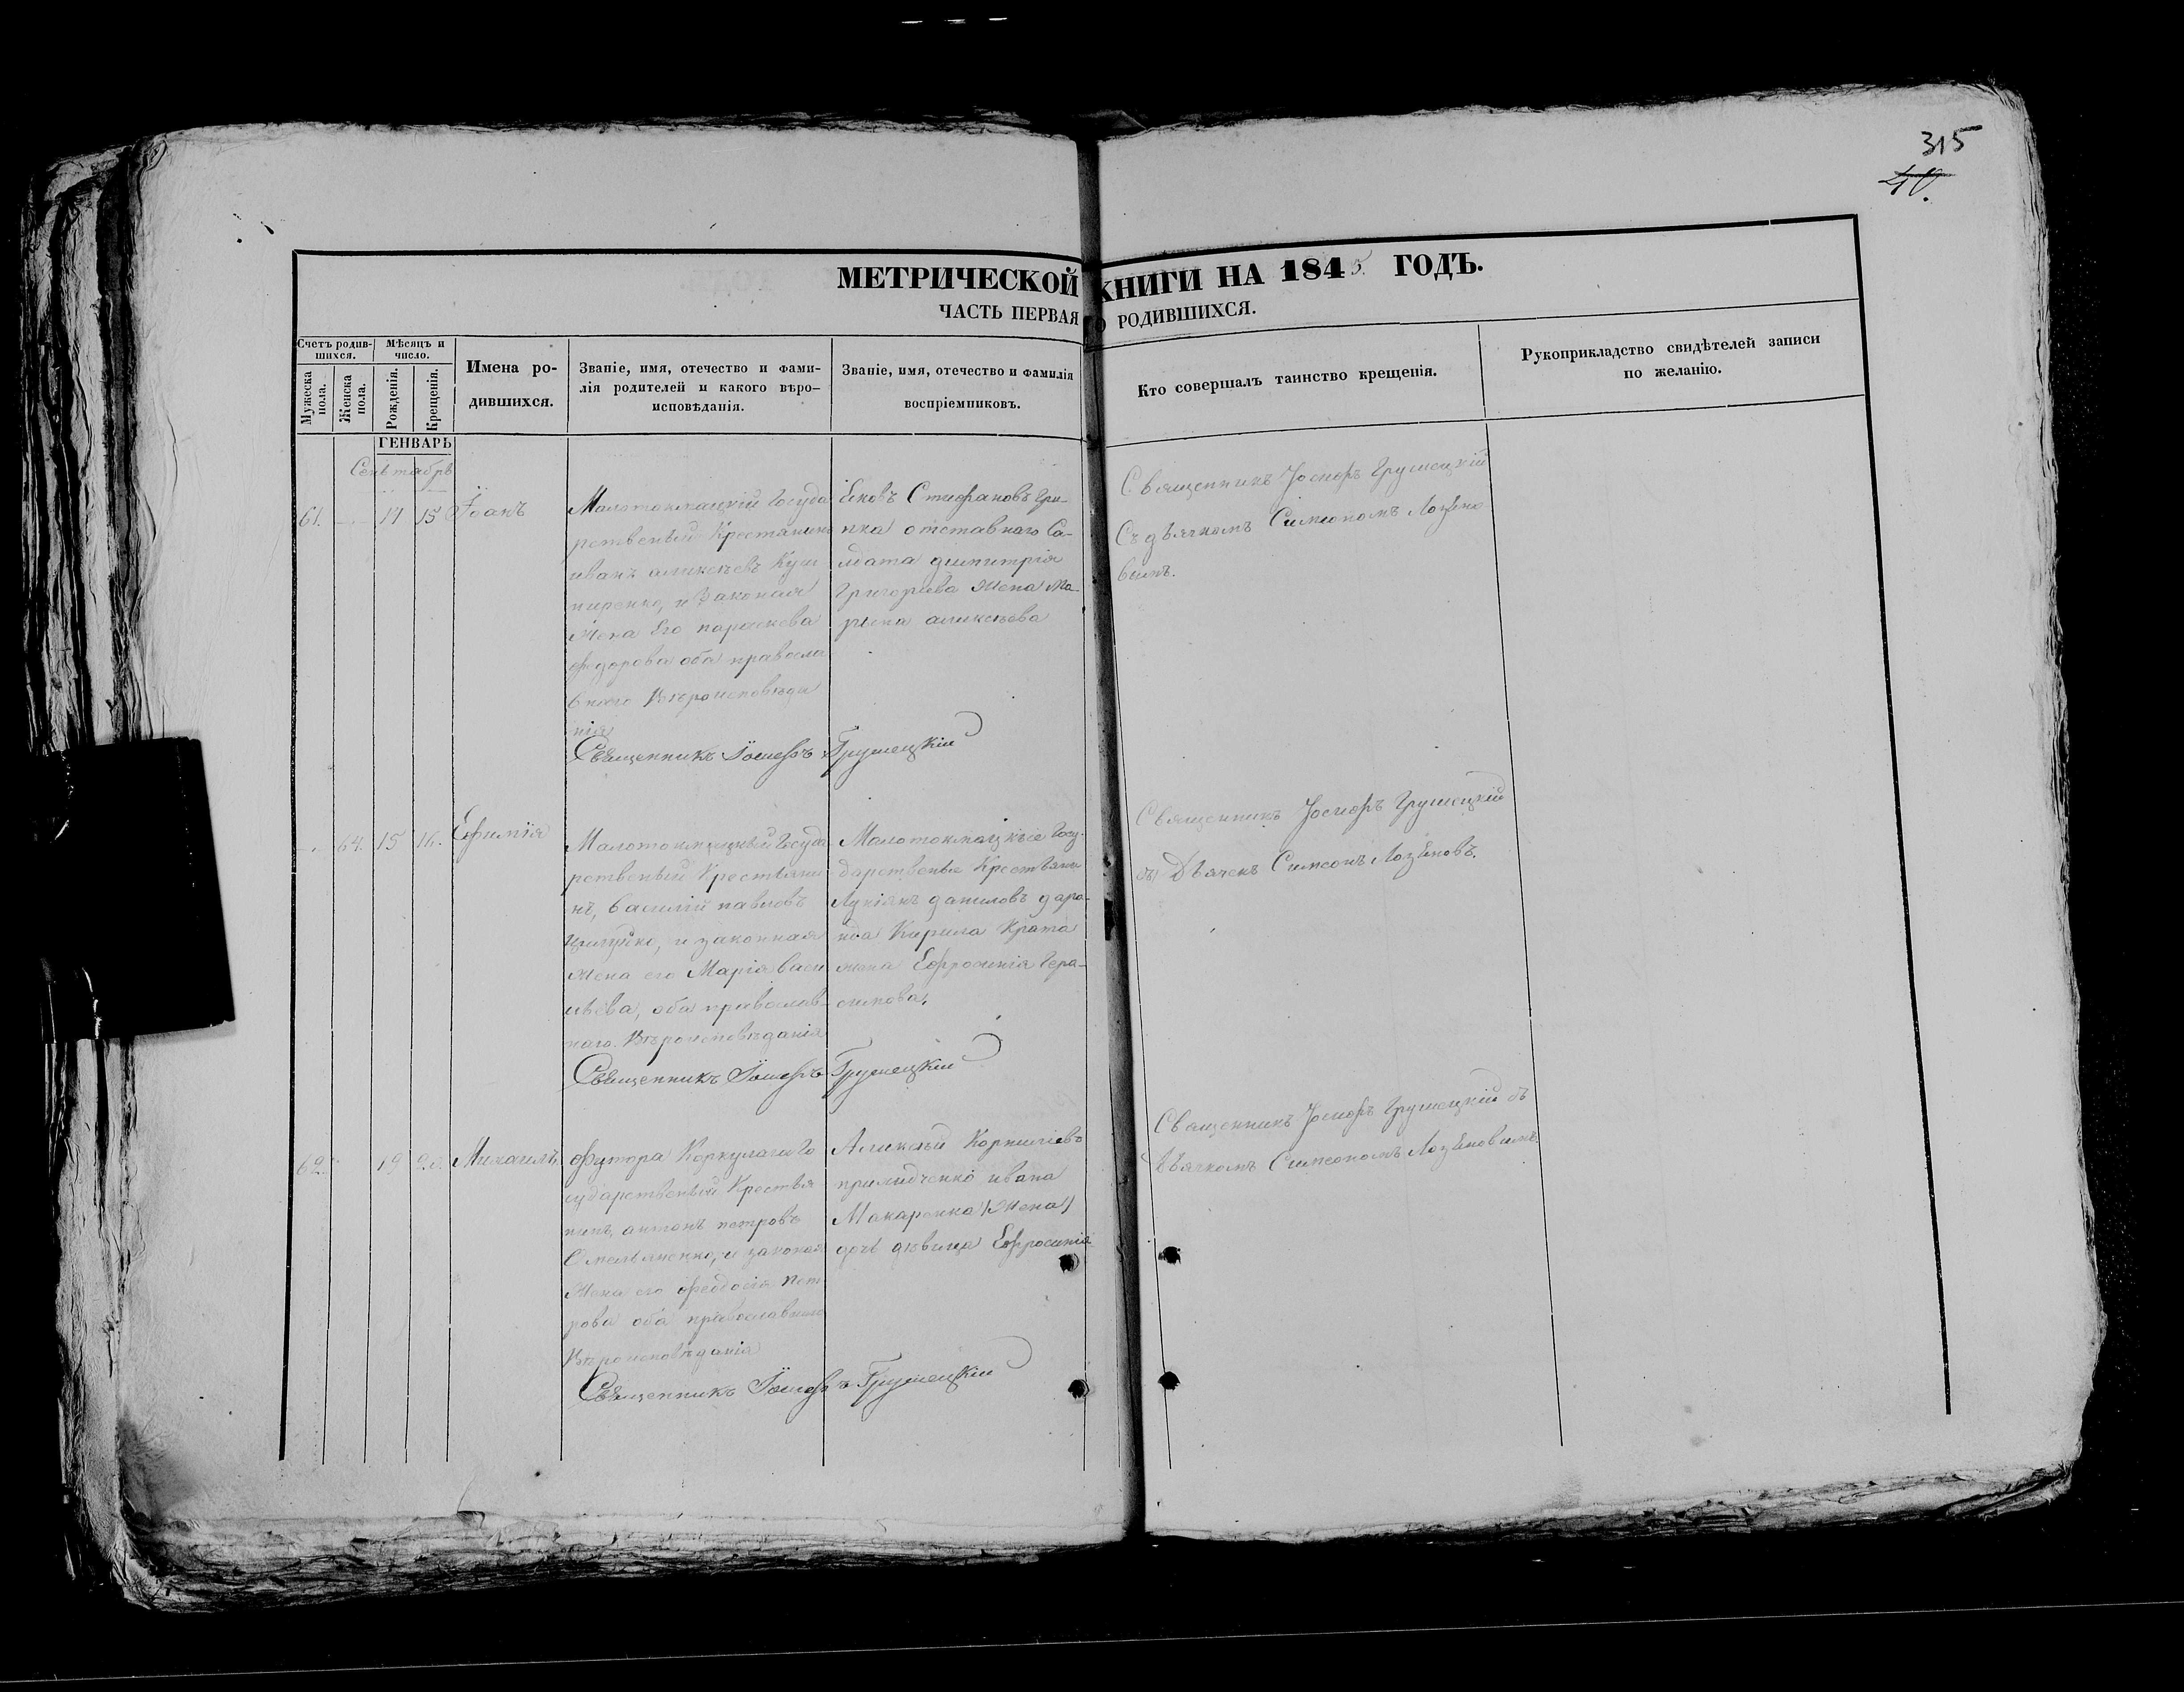 315
40.
МЕТРИЧЕСКОЙ КНИГИ НА 1845. ГОДЪ.
ЧАСТЬ ПЕРВАЯ О РОДИВШИХСЯ.
Счетъ родив-
шихся.
Мужеска
пола.
Женска
пола.
Мѣсяцъ и
число.
Рожденія.
Крещенія.
Имена ро-
дившихся.
Званіе, имя, отечество и фами-
лія родителей и какого вѣро-
исповѣданія.
Званіе, имя, отечество и фамилія
воспріемниковъ.
Кто совершалъ таинство крещенія.
Рукоприкладство свидѣтелей записи
по желанію.
ГЕНВАРЬ
Сентабрь
61. 15 Іоанъ
Малотокмацкій Госуда
рственый Крестянинъ
иванъ аликсѣевъ
и Законая
жена Его параскева
федорова оба правосла
внаго Вѣроисповѣда
нія
Стифановъ Гри-
отставнаго Са-
лдата димитрія
Григоріева жена Ма-
рына аликсѣева
Священникъ Іосифъ Грушецкій
Съ дьячкомъ Симеономъ Лозѣно
вымъ.
Священникъ Іосифъ Грушецкій
64. 15 16. Ефимія
Малотокмацкый Госуда
рственый Крестьяни
нъ, василій павловъ
и законная
жена его Марія васи
лѣева, оба православ-
наго Вѣроисповѣданія
Малотокмацкые Госу-
дарственые Крестьяны
Лукіянъ даниловъ
Кирила
жена Ефросинія Гера-
симова,
Священникъ Іосифъ Грушецкій
Дьячекъ Симеонъ Лозѣновъ.
Священникъ Іосифъ Грушецкій
62. 19 Михаилъ
футора Каркулага Го
сударственый Крестья
нинъ, антонъ петровъ
Омельяненко, и законая
жена его феодосія пет
рова оба православнаго
Вѣроисповѣданія
Аликсѣй Корниліевъ
ивана
Макаренка /жена/
дочь дѣвица Ефросинія
Священникъ Іосифъ Грушецкій съ
дьячкомъ Симеономъ Лозѣновымъ
Священникъ Іосифъ Грушецкій